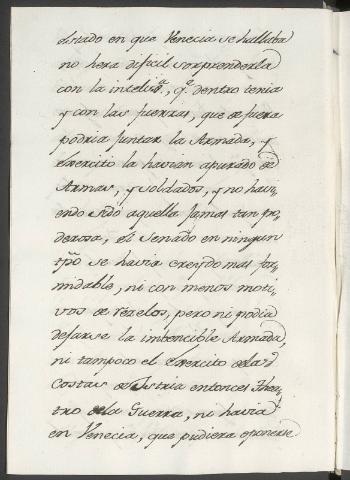 estado en que Venecia se hallaba
no hera dificil sorprenderla
con la inteligª, qᵉ dentro tenia
y con las fuerzas, que de fuera
podria juntar la Armada, y
Exercito la havian apurado de
Armas, y soldados, y no havi=
endo sido aquella jamas tan po=
derosa, el Senado en ningun
tpõ se havia creydo mas for=
midable, ni con menos moti=
vos de rezelos, pero ni podia
dejarse la imbencible Armada,
ni tampoco el Exercito de las
Costas de Istria entonces Thea=
tro de la Guerra, ni havia
en Venecia, que pudiera oponerse